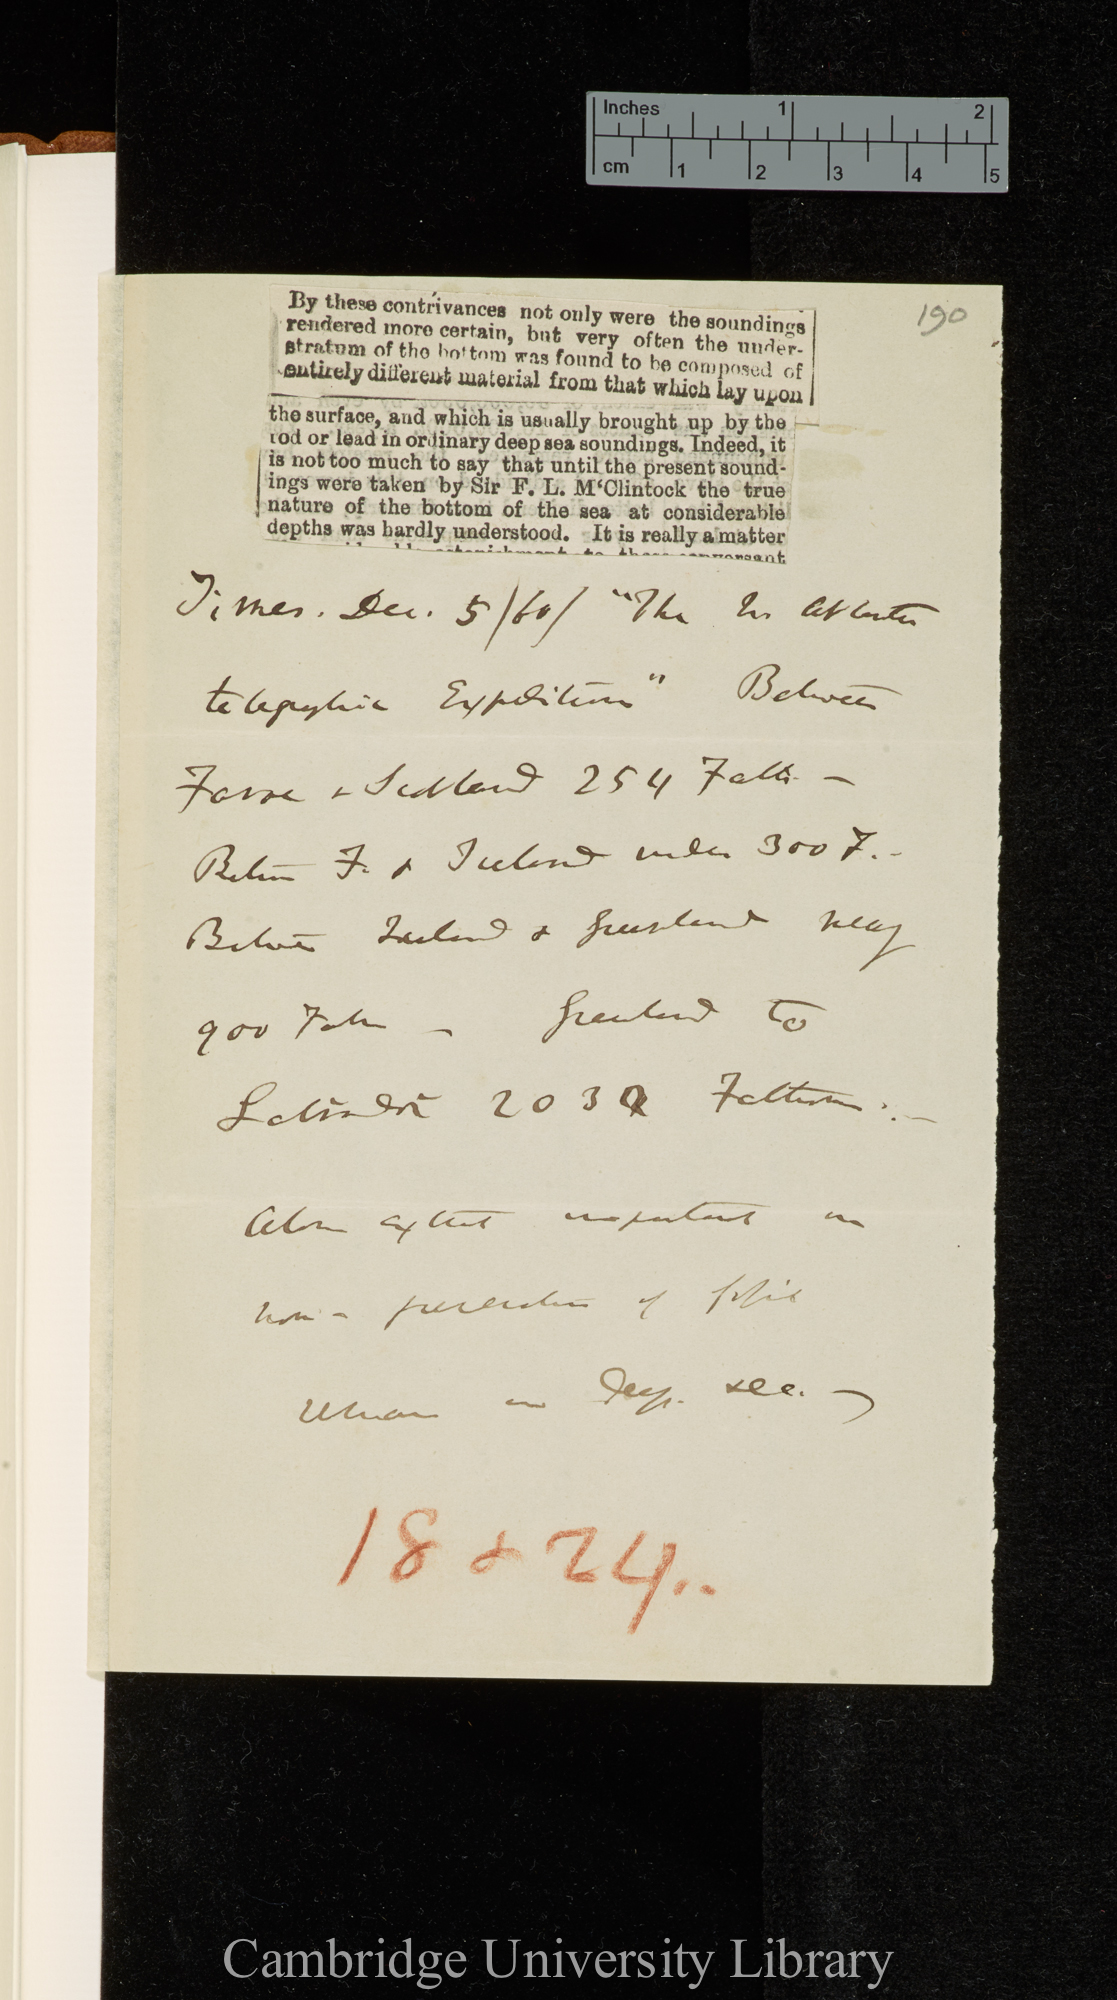 Inches 1 2
cm 1 2 3 4 5
190
By these contrivances not only were the soundings
rendered more certain, but very often the under-
stratum of the bottom was found to be composed of
entirely different material from that which lay upon
the surface, and which is usually brought up by the
rod or lead in ordinary deep sea soundings. Indeed, it
is not too much to say that until the present sound-
ings were taken by Sir F. L. M'Clintock the true
nature of the bottom of the sea at considerable
depths was hardly understood. It is really a matter
astonishment to those conversant
Times. Dec. 5/60/ "The N. Atlantic
telegraphic Expedition" Between
Faroe & Scotland 254 Fath. —
Between F. & Iceland under 300 F. —
Between Iceland & Greenland nearly
900 Fath — Greenland to
Labrador 2032 Fathoms. —
Above extract important on
non-preservation of fossil
in Deep. sea. —
18 & 24..
Cambridge University Library